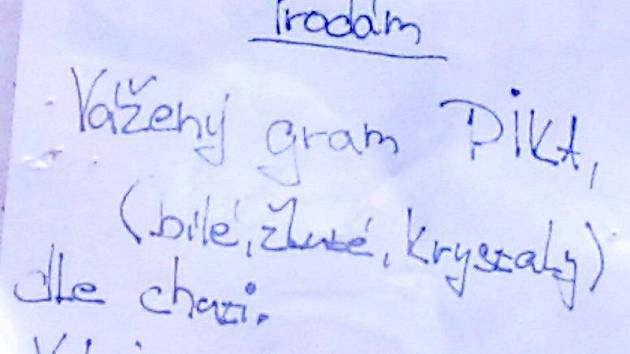 Prodám
Vážený gram PIKA,
(bílé, žluté, krystaly)
dle chuti.